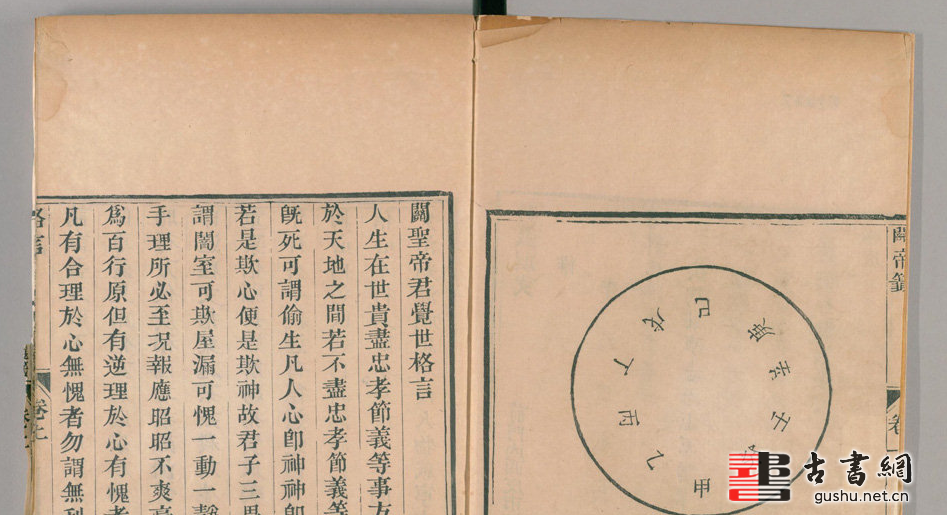 關帝籤
卷
甲
乙
丙
丁
戊
己
庚
辛
壬
關聖帝君覺世格言
人生在世貴盡忠孝節義等事方
於天地之間若不盡忠孝節義等
旣死可謂偷生凡人心卽神神卽
若是欺心便是欺神故君子三
謂闇室可欺屋漏可愧一動一
手理所必至况報應昭昭不爽
爲百行原但有逆理於心有愧者
凡有合理於心無愧者勿謂無利
格言
古書網
gushu.net.cn